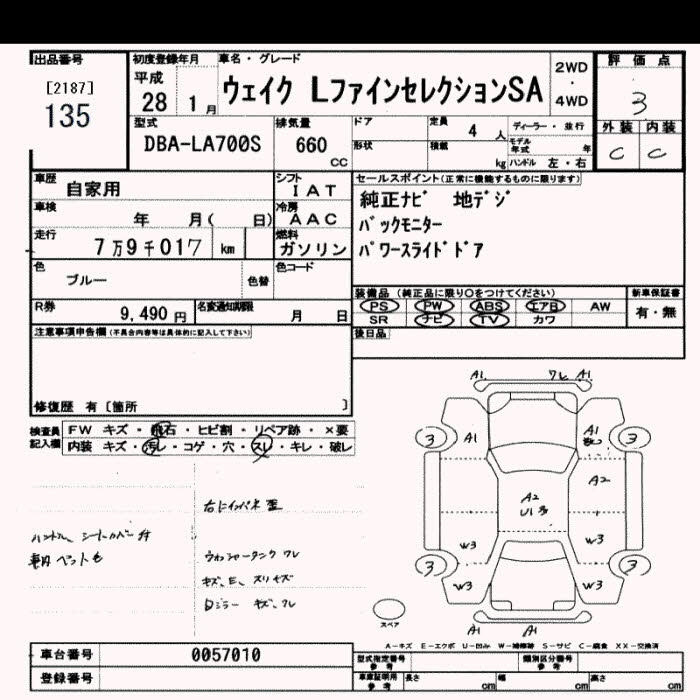 出品番号
[2187]
135
初度登録年月
平成
28 1 月
車名・グレード
ウェイク LファインセレクションSA
2WD
・
4WD
評価点
3
外装 内装
C C
型式
DBA-LA700S
排気量
660
CC
ドア
形状
定員
4 人
積載
kg
ディーラー・並行
モデル年式 年
ハンドル 左・右
車歴
自家用
シフト
IAT
車検
年 月( 日)
冷房
AAC
走行
7万9千017 km
燃料
ガソリン
セールスポイント(正常に機能するものに限ります)
純正ナビ 地デジ
バックモニター
パワースライドドア
色
ブルー
色替
色コード
R券
9,490 円
名変通知期限
月 日
装備品(純正品に限り〇をつけてください)
PS PW ABS エアB AW
SR ナビ TV カワ
新車保証書
有・無
後日品
注意事項申告欄(不具合内容等は具体的に記入して下さい)
修復歴 有[箇所 ]
検査員
記入欄
FW キズ・飛石・ヒビ割・リペア跡・×要
内装 キズ・汚レ・コゲ・穴・スレ・キレ・破レ
右にインパネ
ハンドル シートカバー
車内 ペット毛
ウォッシャータンク ワレ
キズ、E、スリキズ
Dミラー キズ、ワレ
A1 ワレ A1
3 A1 A1 3
A2
A2
U1 多
W3 W3
3 3
W3 W3
A1 A1
スペア
A-キズ E-エクボ U-凹み W-補修跡 S-サビ C-腐食 XX-交換済
車台番号
0057010
登録番号
型式指定番号
参考
類別区分番号
参考
車庫証明用
参考
長さ cm 幅 cm 高さ cm